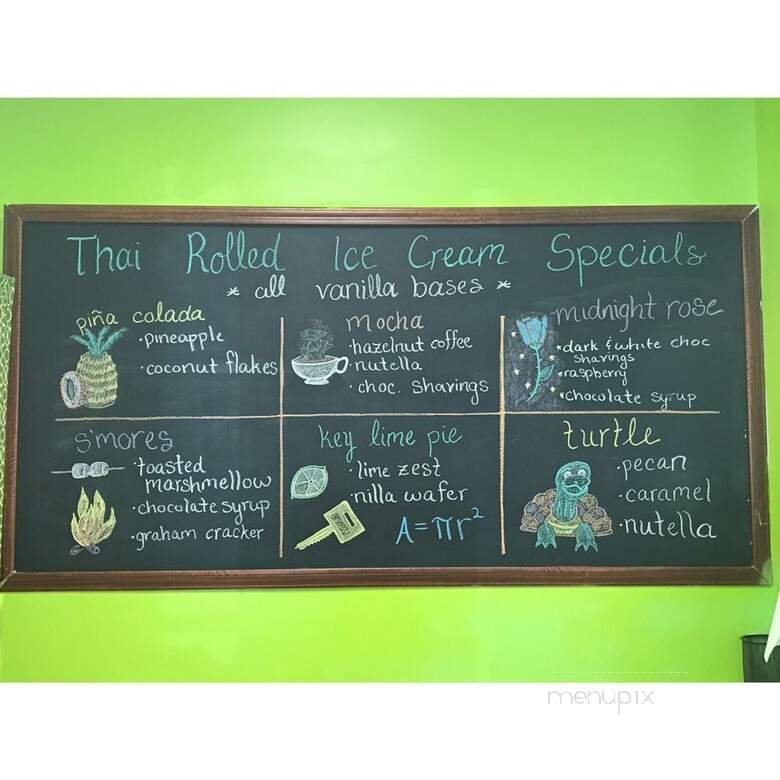 Thai Rolled Ice Cream Specials
* all vanilla bases *
piña colada
•pineapple
•coconut flakes
mocha
•hazelnut coffee
•nutella
•choc. shavings
midnight rose
•dark & white choc
shavings
•raspberry
•chocolate syrup
s'mores
•toasted
marshmellow
•chocolate syrup
•graham cracker
key lime pie
•lime zest
•nilla wafer
A=πr²
turtle
•pecan
•caramel
•nutella
menupix